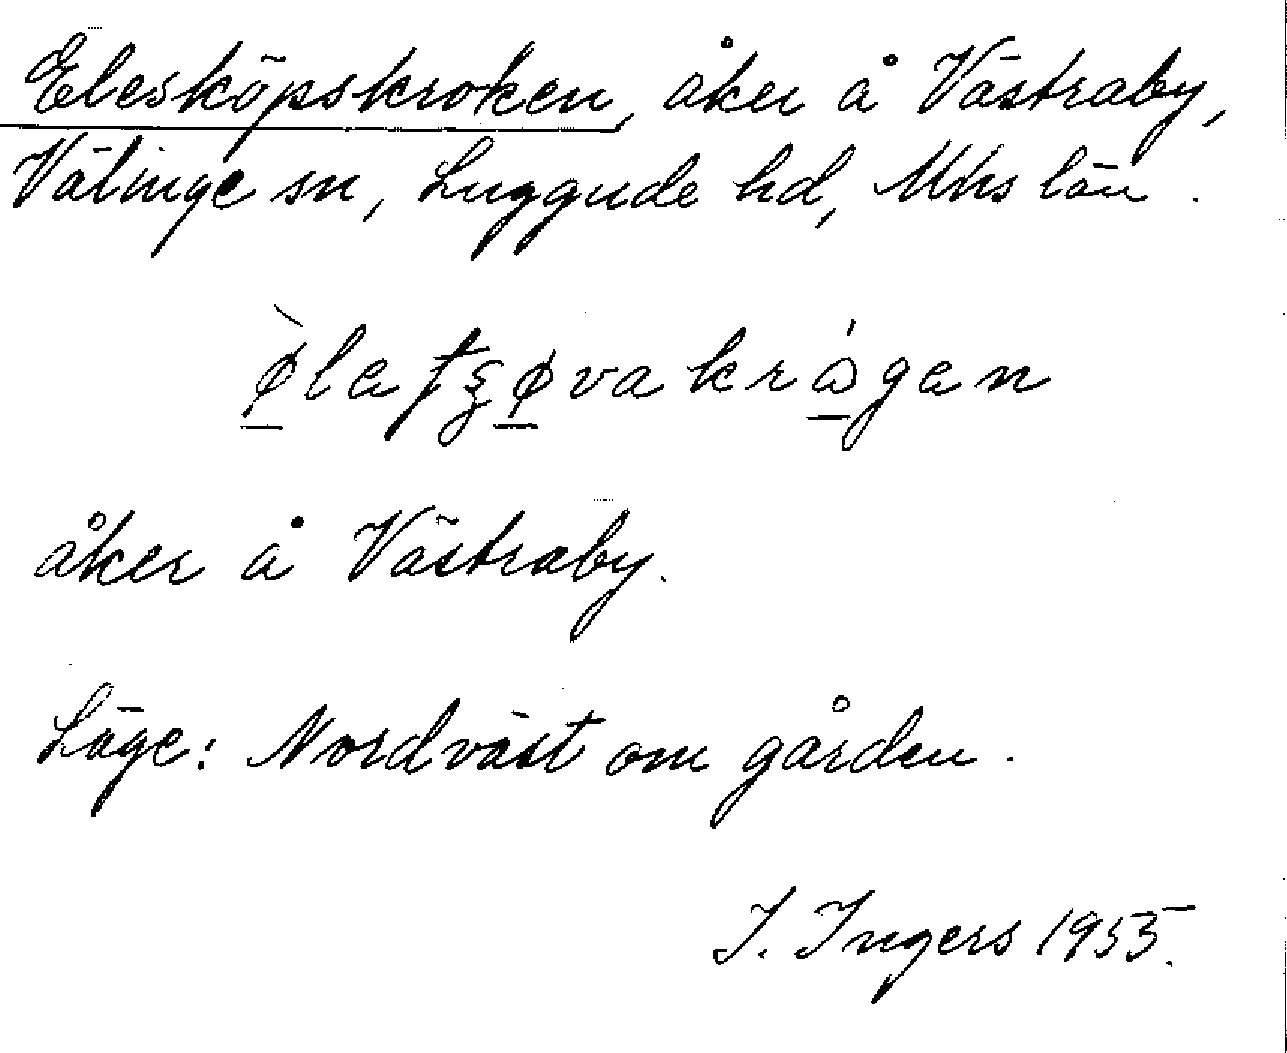 Elesköpskroken, åker å Västraby,
Välinge sn, Luggude hd, Mhs län.
åker å Västraby.
Läge: Nordväst om gården.
I. Ingers 1955.